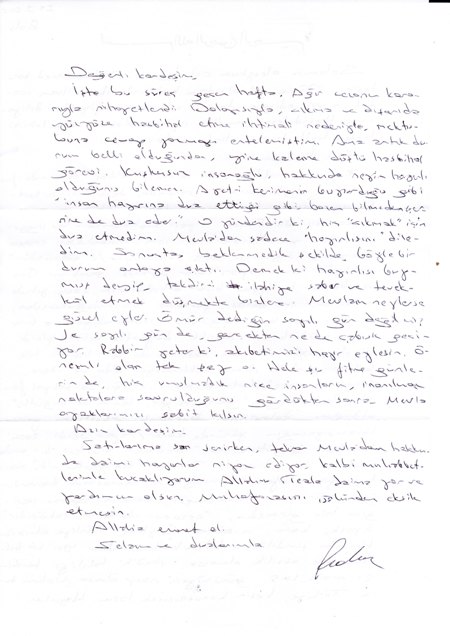 Değerli kardeşim,
İşte bu süreç geçen hafta, Ağır cezanın kara-
rıyla nihayetlendi. Dolayısıyla, çıkma ve dışarıda
yüzyüze hasbihal etme ihtimali nedeniyle, mektu-
buna cevap yazmayı ertelemiştim. Ama artık du-
rum belli olduğundan, yine kaleme düştü hasbihal
görevi. Kuşkusuz insanoğlu, hakkında neyin hayırlı
olduğunu bilemez. Ayeti kerimenin buyurduğu gibi
"insan hayrına dua ettiği gibi bazen bilmeden şer-
rine de dua eder." O yüzdendir ki, hiç "çıkmak" için
dua etmedim. Mevla'dan sadece "hayırlısını" dile-
dim. Sonunda, beklenmedik şekilde, böyle bir
durum ortaya çıktı. Demek ki hayırlısı buy-
muş deyip, takdiri ilahiye sabır ve tevek-
kül etmek düşmekte bizlere. Mevlam neylerse
güzel eyler. Ömür dediğin sayılı gün değil mi;
sayılı gün de, gerçekten ne de çabuk geçi-
yor. Rabbim yeter ki, akibetimizi hayr eylesin. Ö-
nemli olan tek şey o. Hele şu fitne günle-
rinde, hiç umulmadık nice insanların, inanılmaz
noktalara savrulduğunu gördükten sonra. Mevla
ayaklarımızı sabit kılsın.
Aziz kardeşim,
Satırlarıma son verirken, tekrar Mevla'dan hakkın-
da daimi hayırlar niyaz ediyor, kalbi muhabbet-
lerimle kucaklıyorum. Allahu Teala daima yar ve
yardımcın olsun. Muhafazasını üzerinden eksik
etmesin.
Allah'a emanet ol.
Selam ve dualarımla